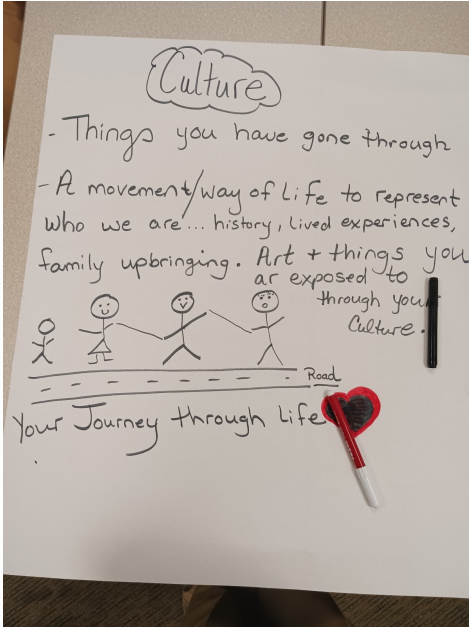 Culture
- Things you have gone through
- A movement/way of Life to represent
who we are... history, lived experiences,
family upbringing. Art + things you
ar exposed to
through your
Culture.
Road
Your Journey through Life